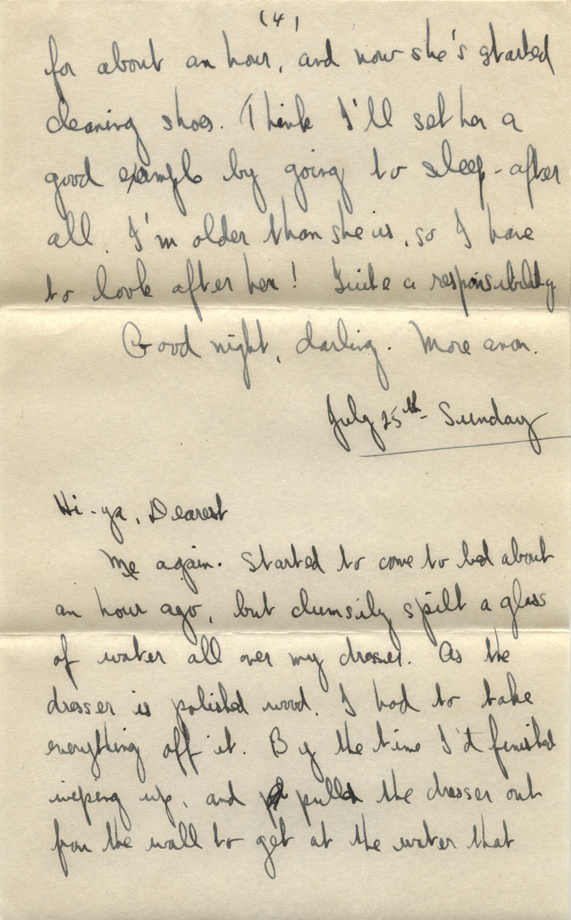 (4)
for about an hour, and now she's started
cleaning shoes. Think I'll set her a
good example by going to sleep - after
all, I'm older than she is, so I have
to look after her! Quite a responsibility
Good night, darling. More anon.
July 25th - Sunday
Hi-ya, Dearest
Me again. Started to come to bed about
an hour ago, but clumsily spilt a glass
of water all over my dresser. As the
dresser is polished wood, I had to take
everything off it. By the time I'd finished
wiping up, and pulled the dresser out
from the wall to get at the water that